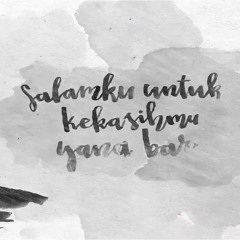 Salamku untuk
kekasihmu
yang